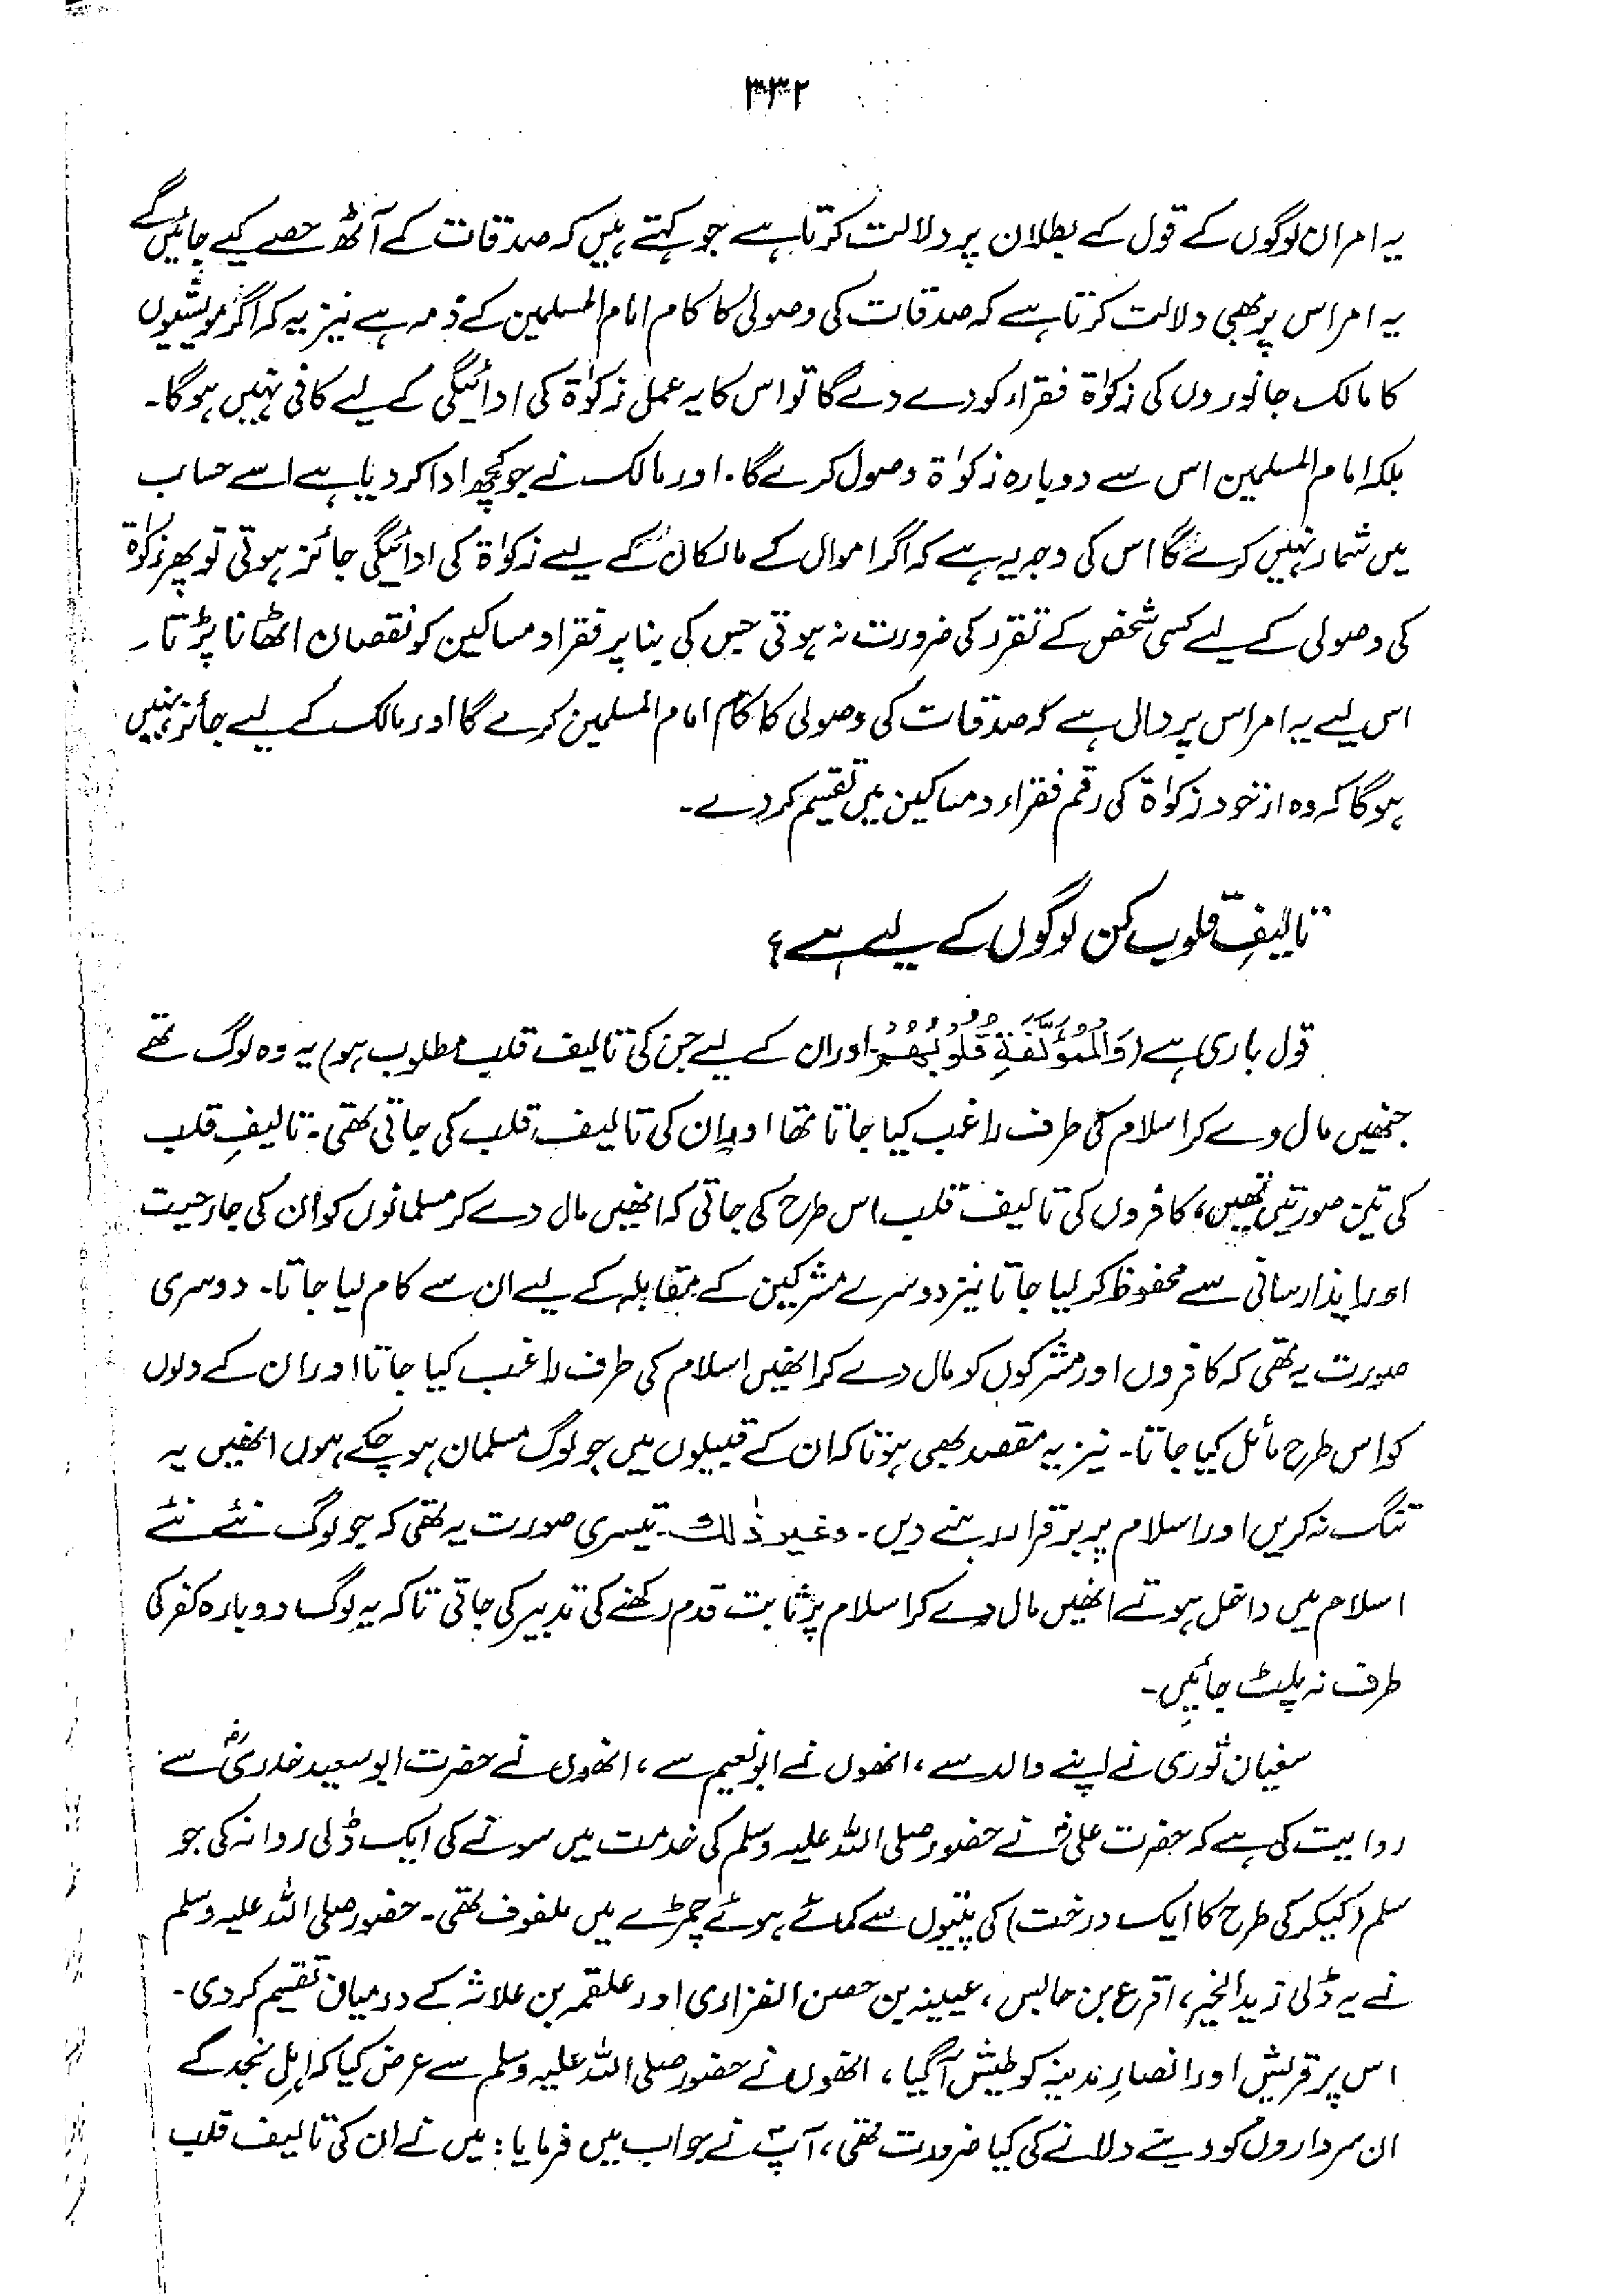 ۳۳۲
یہ امر ان لوگوں کے قول کے بطلان پر دلالت کرتا ہے جو کہتے ہیں کہ صدقات کے آٹھ حصے کیے جائیں گے
یہ امر اس پر بھی دلالت کرتا ہے کہ صدقات کی وصولی کا کام امام المسلمین کے ذمہ ہے نیز یہ کہ اگر مویشیوں
کا مالک جانوروں کی زکوٰۃ فقراء کو دے دے گا تو اس کا یہ عمل زکوٰۃ کی ادائیگی کے لیے کافی نہیں ہوگا۔
بلکہ امام المسلمین اس سے دوبارہ زکوٰۃ وصول کرے گا۔ اور مالک نے جو کچھ ادا کر دیا ہے اسے حساب
میں شمار نہیں کرے گا اس کی وجہ یہ ہے کہ اگر اموال کے مالکان کے لیے زکوٰۃ کی ادائیگی جائز ہوتی تو پھر زکوٰۃ
کی وصولی کے لیے کسی شخص کے تقرر کی ضرورت نہ ہوتی جس کی بنا پر فقرا و مساکین کو نقصان اٹھانا پڑتا ر
اس لیے یہ امر اس پر دال ہے کہ صدقات کی وصولی کا کام امام المسلمین کرے گا اور مالک کے لیے جائز نہیں
ہوگا کہ وہ از خود زکوٰۃ کی رقم فقراء و مساکین میں تقسیم کر دے۔
تالیفِ قلوب کن لوگوں کے لیے ہے؟
قول باری ہے (وَالْمُؤَلَّفَةِ قُلُوبُهُمْ۔ اور ان کے لیے جن کی تالیف قلب مطلوب ہو) یہ وہ لوگ تھے
جنھیں مال دے کر اسلام کی طرف راغب کیا جاتا تھا اور ان کی تالیف قلب کی جاتی تھی۔ تالیفِ قلب
کی تین صورتیں تھیں، کافروں کی تالیف قلب اس طرح کی جاتی کہ انھیں مال دے کر مسلمانوں کو ان کی جارحیت
اور ایذارسانی سے محفوظ کر لیا جاتا نیز دوسرے مشرکین کے مقابلہ کے لیے ان سے کام لیا جاتا۔ دوسری
صورت یہ تھی کہ کافروں اور مشرکوں کو مال دے کر انھیں اسلام کی طرف راغب کیا جاتا اور ان کے دلوں
کو اس طرح مائل کیا جاتا۔ نیز یہ مقصد بھی ہوتا کہ ان کے قبیلوں میں جو لوگ مسلمان ہو چکے ہوں انھیں یہ
تنگ نہ کریں اور اسلام پر برقرار رہنے دیں۔ وغیر ذٰلك۔ تیسری صورت یہ تھی کہ جو لوگ نئے نئے
اسلام میں داخل ہوتے انھیں مال دے کر اسلام پر ثابت قدم رکھنے کی تدبیر کی جاتی تاکہ یہ لوگ دوبارہ کفر کی
طرف نہ پلٹ جائیں۔
سفیان ثوری نے اپنے والد سے، انھوں نے ابو نعیم سے، انھوں نے حضرت ابو سعید خدریؓ سے
روایت کی ہے کہ حضرت علیؓ نے حضور صلی اللہ علیہ وسلم کی خدمت میں سونے کی ایک ڈلی روانہ کی جو
سلم (کیکر کی طرح کا ایک درخت) کی پتیوں سے کمائے ہوئے چمڑے میں ملفوف تھی۔ حضور صلی اللہ علیہ وسلم
نے یہ ڈلی زید الخیر، اقرع بن حابس، عیینہ بن حصن الفزاری اور علقمہ بن علاثہ کے درمیان تقسیم کر دی۔
اس پر قریش اور انصارِ مدینہ کو طیش آ گیا، انھوں نے حضور صلی اللہ علیہ وسلم سے عرض کیا کہ اہلِ نجد کے
ان سرداروں کو دینے دلانے کی کیا ضرورت تھی، آپؐ نے جواب میں فرمایا: میں نے ان کی تالیف قلب